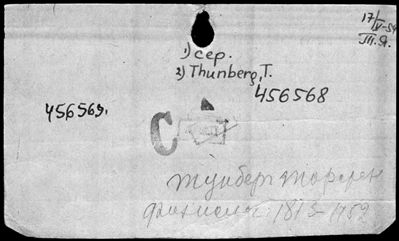 17/IV-59
III.Я.
1) сер.
2) Thunberg, T.
456569.
456568
С
Тунберг Торстен
физиолог. 1873-1952